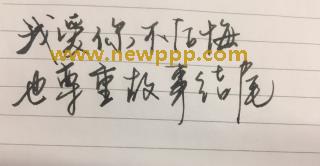 我爱你,不后悔
www.newppp.com
也尊重故事结尾